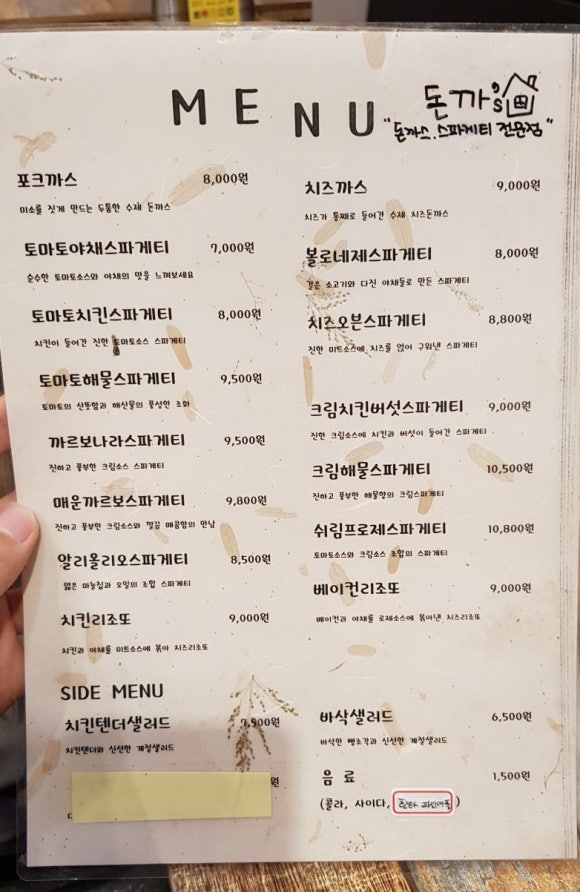 MENU
돈까's
"돈까스.스파게티 전문점"
포크까스 8,000원
미소를 짓게 만드는 두툼한 수제 돈까스
토마토야채스파게티 7,000원
순수한 토마토소스와 야채의 맛을 느껴보세요
토마토치킨스파게티 8,000원
치킨이 들어간 진한 토마토소스 스파게티
토마토해물스파게티 9,500원
토마토의 산뜻함과 해산물의 풍성한 조화
까르보나라스파게티 9,500원
진하고 풍부한 크림소스 스파게티
매운까르보스파게티 9,800원
진하고 풍부한 크림소스와 깔끔 매콤함의 만남
알리올리오스파게티 8,500원
얇은 마늘칩과 오일의 조합 스파게티
치킨리조또 9,000원
치킨과 야채를 미트소스에 볶아 치즈리조또
치즈까스 9,000원
치즈가 통째로 들어간 수제 치즈돈까스
볼로네제스파게티 8,000원
같은 소고기와 다진 야채들로 만든 스파게티
치즈오븐스파게티 8,800원
진한 미트소스에 치즈를 얹어 구워낸 스파게티
크림치킨버섯스파게티 9,000원
진한 크림소스에 치킨과 버섯이 들어간 스파게티
크림해물스파게티 10,500원
진하고 풍부한 해물향의 크림스파게티
쉬림프로제스파게티 10,800원
토마토소스와 크림소스 조합의 스파게티
베이컨리조또 9,000원
베이컨과 야채를 로제소스에 볶아낸 치즈리조또
SIDE MENU
치킨텐더샐러드 7,500원
치킨텐더와 신선한 계절샐러드
원
바삭샐러드 6,500원
바삭한 빵조각과 신선한 계절샐러드
음료 1,500원
(콜라, 사이다, )